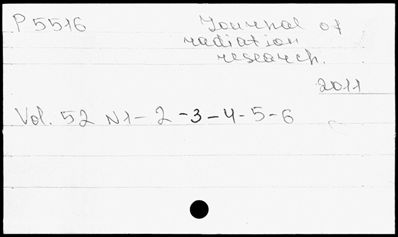 P 5516 Journal of
radiation
research.
2011
Vol. 52 N1-2-3-4-5-6